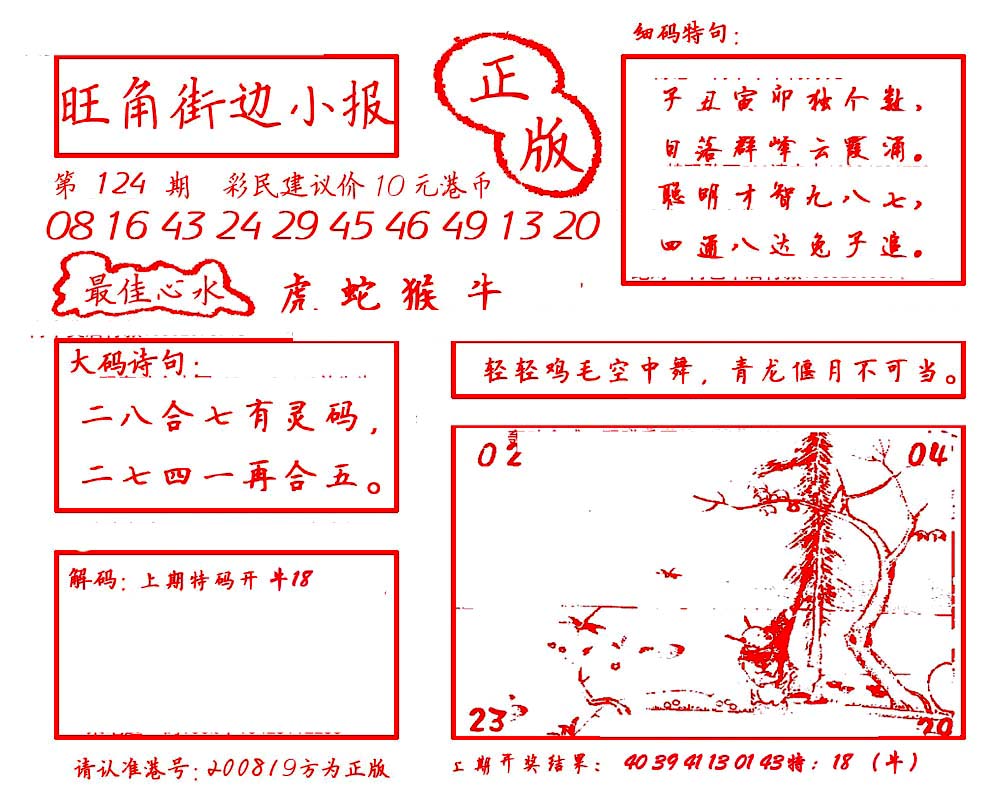 旺角街边小报
正
版
第 124 期 彩民建议价10元港币
08 16 43 24 29 45 46 49 13 20
最佳心水 虎 蛇 猴 牛
细码特句：
子丑寅卯独个数，
日落群峰云霞涌。
聪明才智九八七，
四通八达兔子追。
大码诗句：
二八合七有灵码，
二七四一再合五。
轻轻鸡毛空中舞，青龙偃月不可当。
02
04
23
29
解码：上期特码开 牛18
请认准港号：200819方为正版
上期开奖结果： 40 39 41 13 01 43特：18 （牛）